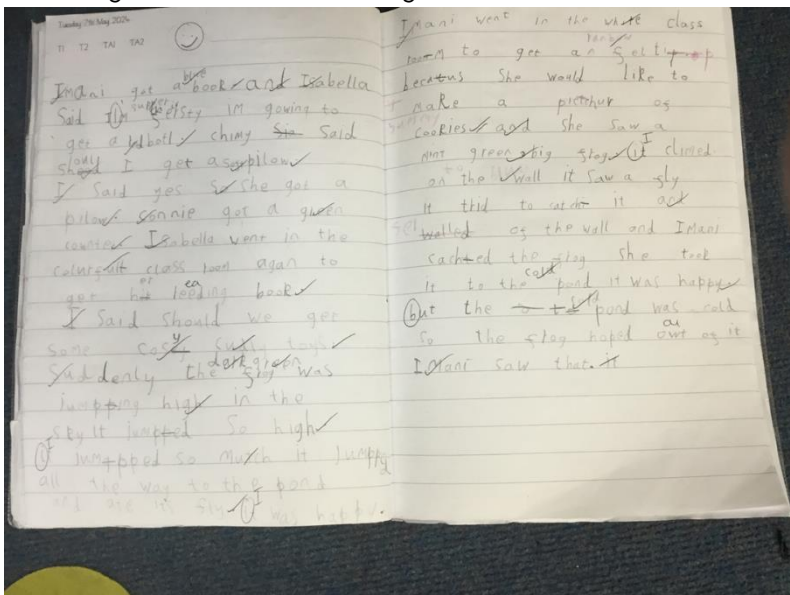 Tuesday 7th May 2024
T1 T2 TA1 TA2
blue
Imani got a book and Isabella
Said I'm super fersty IM gowing to
get a botl chimy Said
I get a pilow
I Said yes So She got a
pilow Sonnie got a green
counter Isabella went in the
colourfull class room agan to
get her reeding book
I Said Should we get
some cosy toys
dark green
Suddenly the frog was
jumpping high in the
sky It jumpped So high
I jumpped so much it Jumppy
all the way to the pond
and it was happy.
Imani went in the white class
rainbow
room to get an feltip
becatus She would like to
Make a picthur of
cookies and she saw a
Mint green big frog it climed
on the wall it Saw a fly
It trid to catch it and
fell of the wall and Imani
cached the frog She took
cold
it to the pond it was happy
but the pond was cold
ou
So the frog hoped owt of it
IMani Saw that. it